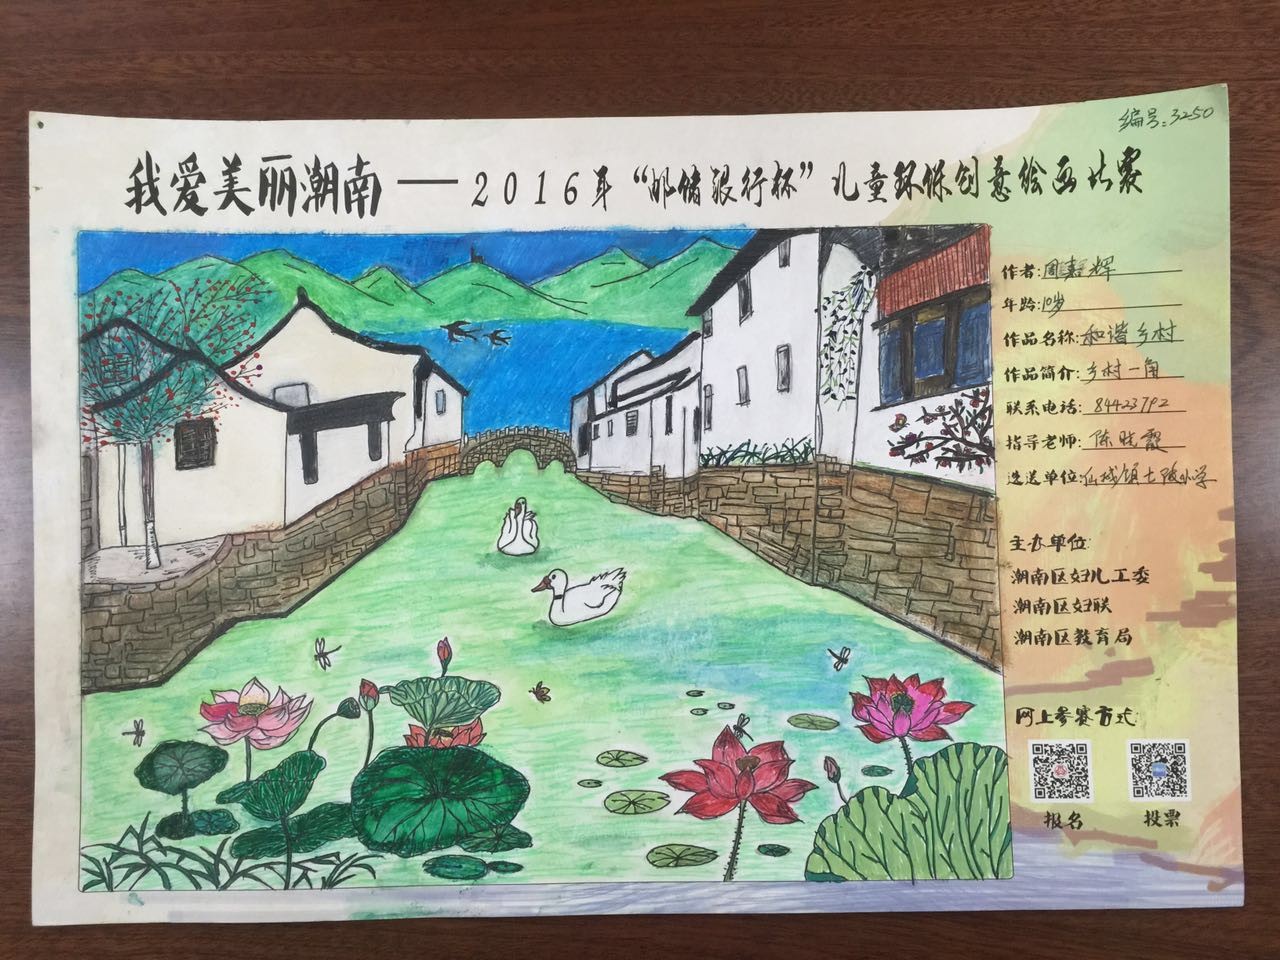 编号:3250
我爱美丽潮南——2016年“邮储银行杯”儿童环保创意绘画比赛
作者:周嘉辉
年龄:10岁
作品名称:和谐乡村
作品简介:乡村一角
联系电话:84423792
指导老师:陈晓霞
选送单位:仙城镇七陂小学
主办单位:
潮南区妇儿工委
潮南区妇联
潮南区教育局
网上参赛方式:
报名
投票